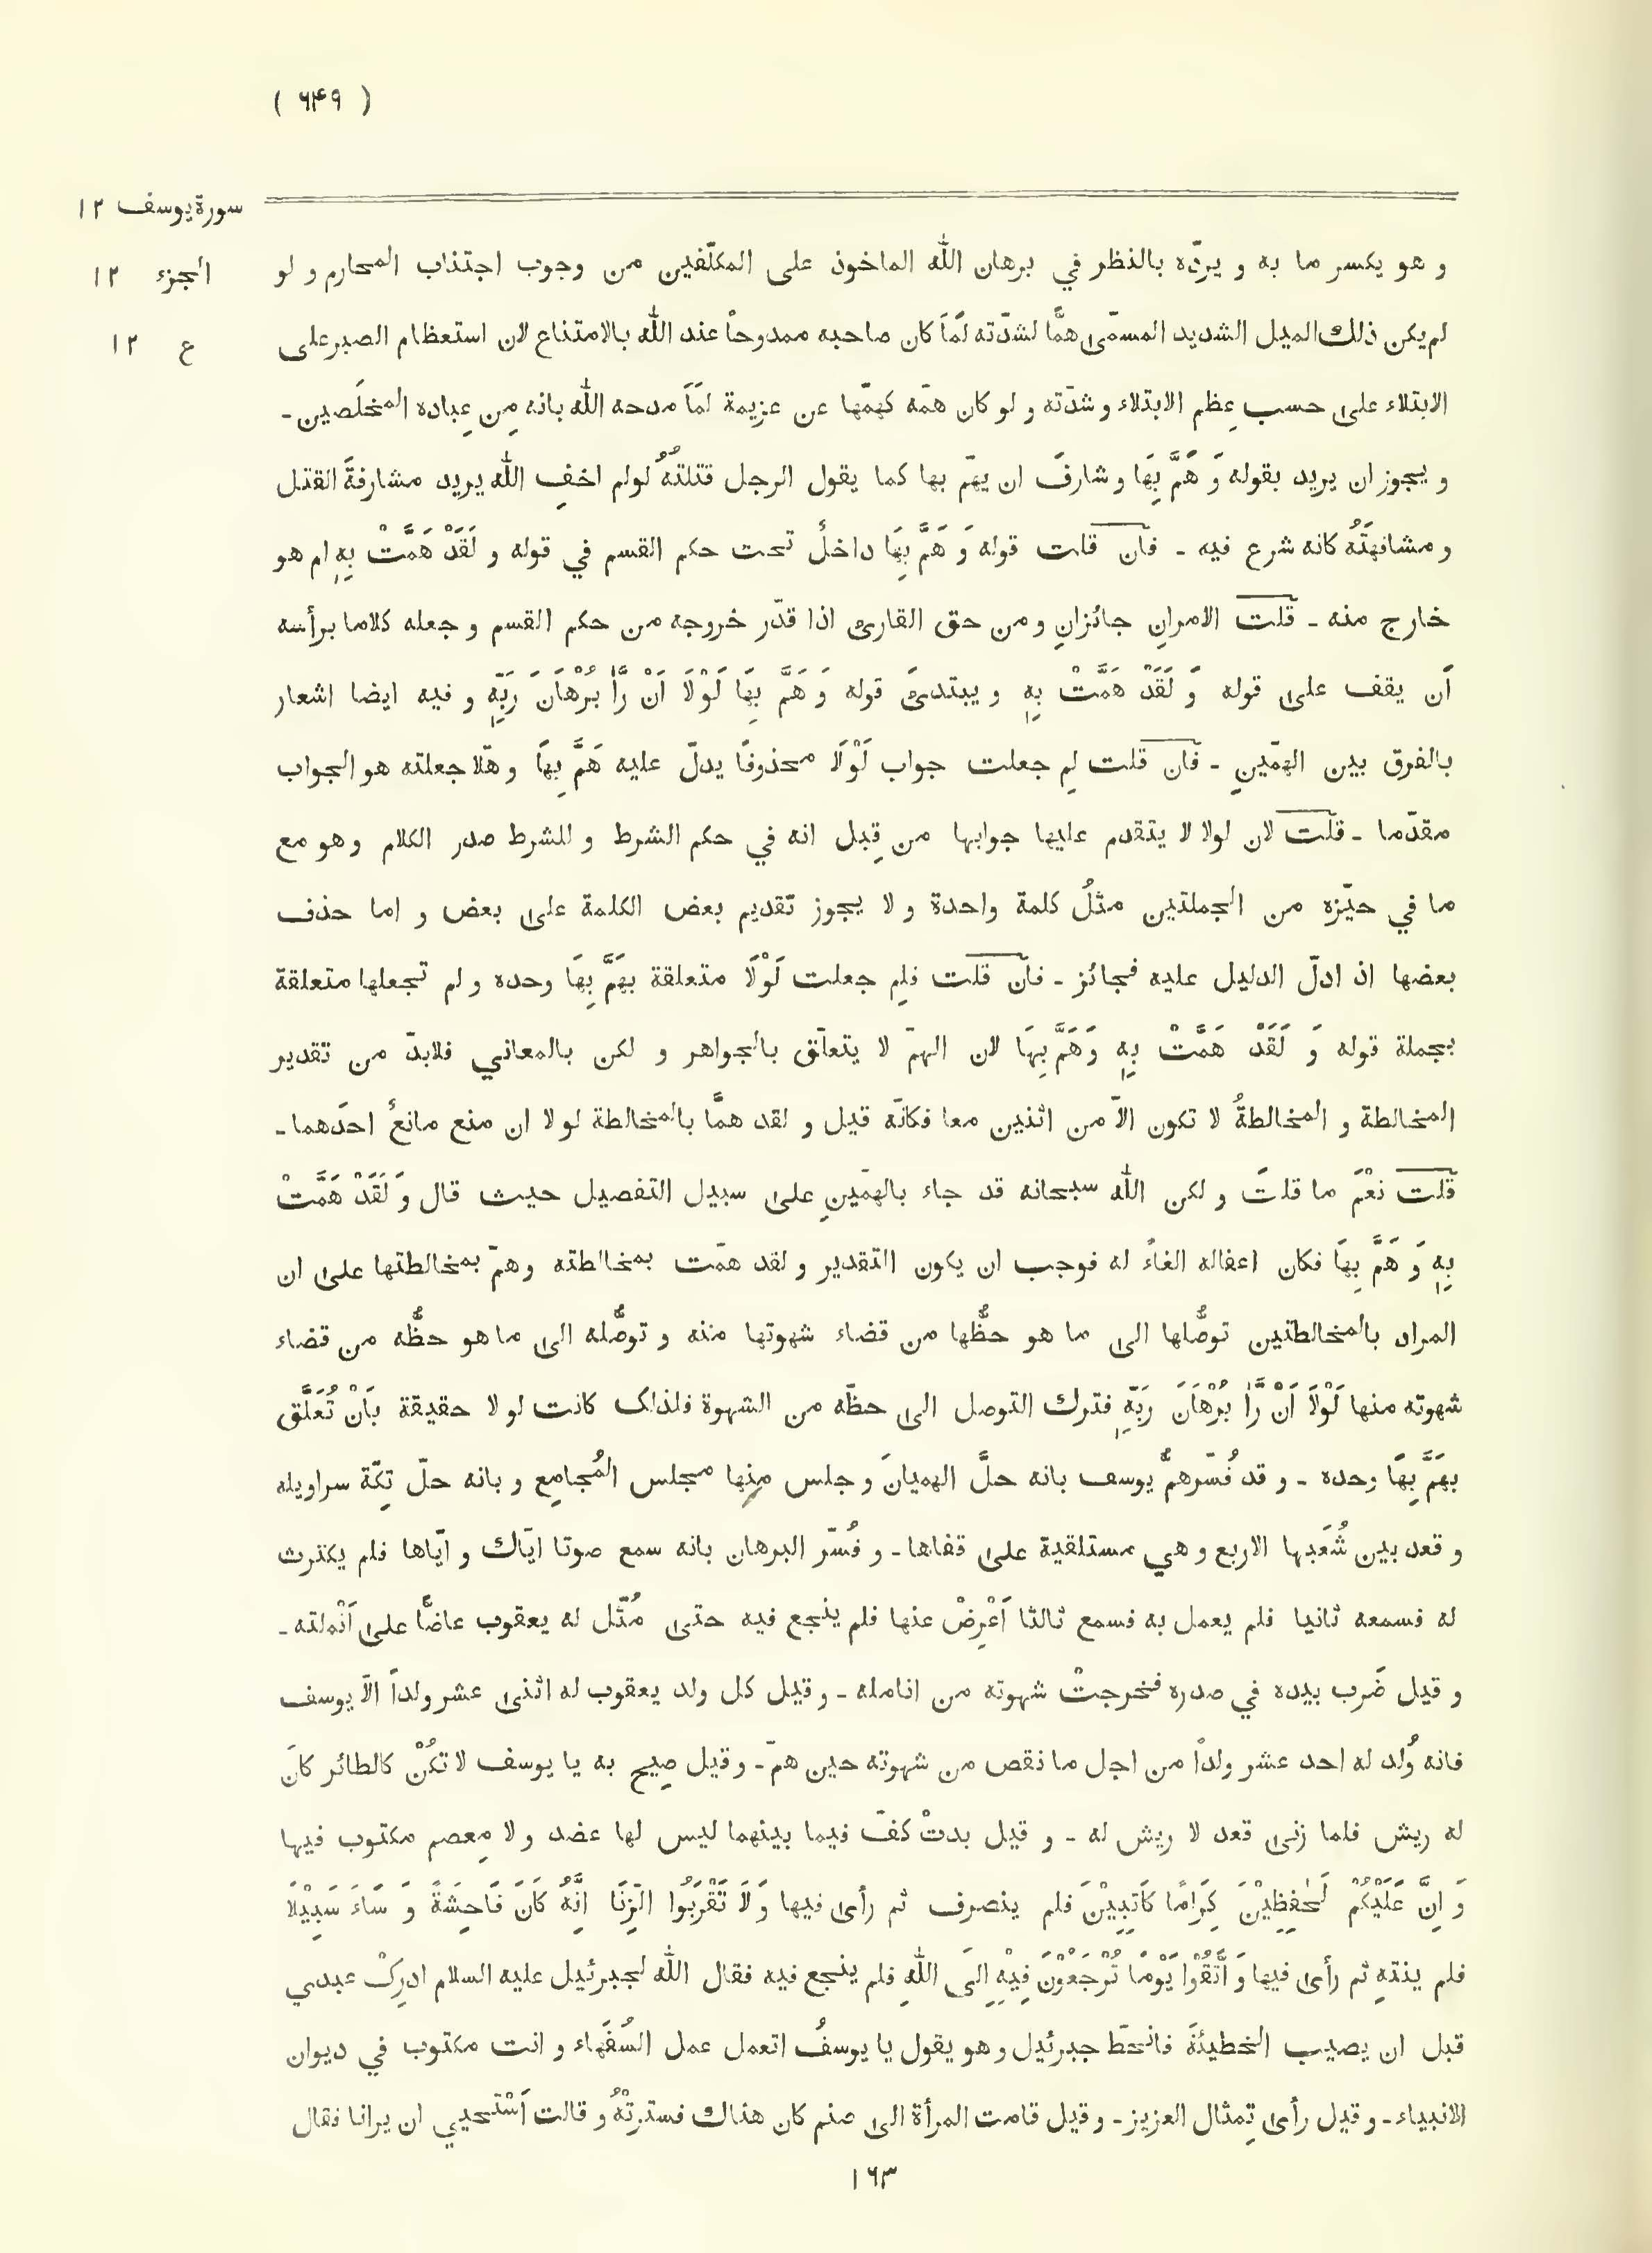 ( ۶۴۹ )
سورة يوسف ١٢
الجزء ١٢
ع ١٢
و هو يكسر ما به و يردّه بالنظر في برهان الله الماخوذ على المكلّفين من وجوب اجتناب المحارم و لو
لم يكن ذلك الميل الشديد المسمّى همًّا لشدّته لَمَا كان صاحبه ممدوحاً عند الله بالامتناع لان استعظام الصبر على
الابتلاء على حسب عِظم الابتلاء و شدّته و لو كان همّه كهمّها عن عزيمة لَمَا مدحه الله بانه مِن عِباده المخلَصين ـ
و يجوز ان يريد بقوله وَ هَمَّ بِهَا و شارفَ ان يهمّ بها كما يقول الرجل قتلتُهُ لو لم اخفِ الله يريد مشارفةَ القتل
و مشافهتَهُ كانه شرع فيه ـ فان قلت قوله وَ هَمَّ بِهَا داخلٌ تحت حكم القسم في قوله و لَقَدْ هَمَّتْ بِهٖ ام هو
خارج منه ـ قلت الامرانِ جائزانِ و من حق القارئ اذا قدّر خروجه من حكم القسم و جعله كلاما برأسه
أن يقف على قوله وَ لَقَدْ هَمَّتْ بِهٖ و يبتدئَ قوله وَ هَمَّ بِهَا لَوْلَا اَنْ رَّاٰ بُرْهَانَ رَبِّهٖ و فيه ايضا اشعار
بالفرق بين الهمّينِ ـ فان قلت لِم جعلت جواب لَوْلَا محذوفًا يدلّ عليه هَمَّ بِهَا و هّلا جعلته هو الجواب
مقدّما ـ قلت لان لولا لا يتقدم عليها جوابها من قِبل انه في حكم الشرط و للشرط صدر الكلام و هو مع
ما في حيّزه من الجملتين مثلُ كلمة واحدة و لا يجوز تقديم بعض الكلمة على بعض و اما حذف
بعضها اذ ادلّ الدليل عليه فجائز ـ فان قلت فلِم جعلت لَوْلَا متعلقة بهَمَّ بِهَا وحده و لم تجعلها متعلقة
بجملة قوله وَ لَقَدْ هَمَّتْ بِهٖ وَهَمَّ بِهَا لان الهمّ لا يتعلّق بالجواهر و لكن بالمعاني فلابدّ من تقدير
المخالطة و المخالطةُ لا تكون الّا من اثنين معا فكانّه قيل و لقد همَّا بالمخالطة لو لا ان منع مانعٌ احدَهما ـ
قلت نعْمَ ما قلتَ و لكن الله سبحانه قد جاء بالهمّينِ على سبيل التفصيل حيث قال وَ لَقَدْ هَمَّتْ
بِهٖ وَ هَمَّ بِهَا فكان اغفاله الغاءً له فوجب ان يكون التقدير و لقد همّت بمخالطته و همّ بمخالطتها على ان
المراد بالمخالطتين توصُّلها الى ما هو حظُّها من قضاء شهوتها منه و توصُّله الى ما هو حظُّه من قضاء
شهوته منها لَوْلَا اَنْ رَّاٰ بُرْهَانَ رَبِّهٖ فترك التوصل الى حظّه من الشهوة فلذلك كانت لو لا حقيقة بأنْ تُعلَّق
بهَمَّ بِهَا وحده ـ و قد فُسّرهمُّ يوسف بانه حلَّ الهميانَ و جلس منها مجلس المُجامِع و بانه حلّ تِكّة سراويله
و قعد بين شُعَبها الاربع و هي مستلقية على قفاها ـ و فُسّر البرهان بانه سمع صوتا ايّاك و ايّاها فلم يكترث
له فسمعه ثانيا فلم يعمل به فسمع ثالثا اَعْرِضْ عنها فلم ينجع فيه حتى مُثّل له يعقوب عاضًّا على اَنْملته ـ
و قيل ضَرب بيده في صدره فخرجتْ شهوته من انامله ـ و قيل كل ولد يعقوب له اثنى عشر ولداً الّا يوسف
فانه وُلد له احد عشر ولداً من اجل ما نقص من شهوته حين همّ ـ و قيل صِيح به يا يوسف لا تكُنْ كالطائر كانَ
له ريش فلما زنى قعد لا ريش له ـ و قيل بدتْ كفّ فيما بينهما ليس لها عضد و لا مِعصم مكتوب فيها
وَ اِنَّ عَلَيْكُمْ لَحٰفِظِيْنَ كِرَامًا كَاتِبِيْنَ فلم ينصرف ثم رأى فيها وَ لَا تَقْرَبُوا الزِّنَا اِنَّهُ كَانَ فَاحِشَةً وَ سَاءَ سَبِيْلًا
فلم ينتهِ ثم رأى فيها وَ اتَّقُوْا يَوْمًا تُرْجَعُوْنَ فِيْهِ اِلَى اللّٰهِ فلم ينجع فيه فقال الله لجبرئيل عليه السلام ادرِكْ عبدي
قبل ان يصيب الخطيئةَ فانحطّ جبرئيل و هو يقول يا يوسفُ اتعمل عمل السُفَهاء و انت مكتوب في ديوان
الانبياء ـ و قيل رأى تِمثال العزيز ـ و قيل قامت المرأة الى صنم كان هناك فسترتْهُ و قالت اَسْتحيي ان يرانا فقال
١٦٣